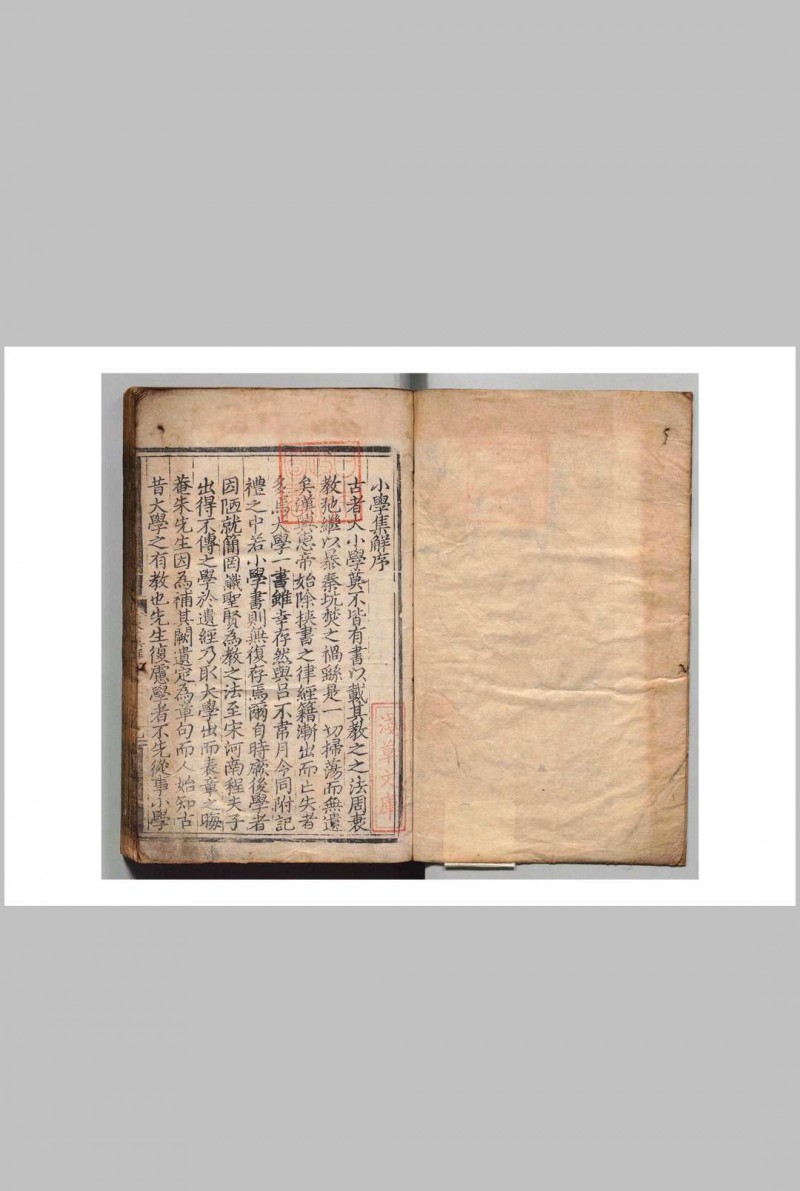 小學集解序
古者大小學莫不皆有書以載其教之之法周衰
教弛繼以暴秦坑焚之禍繇是一切掃蕩而無遺
矣漢興惠帝始除挾書之律經籍漸出而亡失者
多焉大學一書雖幸存然與呂不韋月令同附記
禮之中若小學書則無復存焉爾自時厥後學者
因陋就簡罔識聖賢為教之法至宋河南程夫子
出得不傳之學於遺經乃取大學出而表章之晦
菴朱先生因為補其闕遺定為章句而人始知古
昔大學之有教也先生復慮學者不先從事小學
漢草文庫